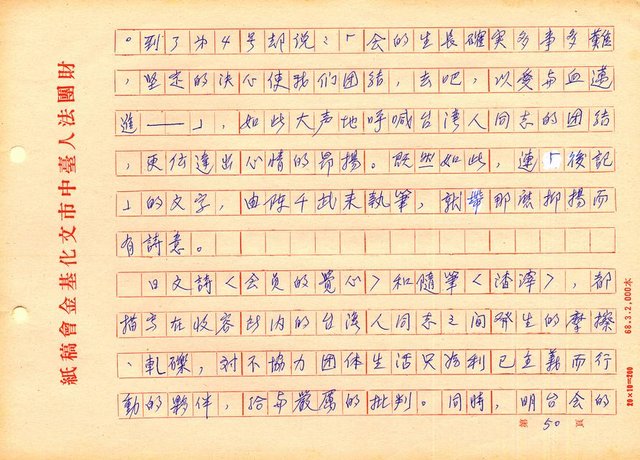 。到了第4号却说：「会的生長確实多事多難
，坚定的决心使我们团結，去吧，以愛与血邁
進──」，如此大声地呼喊台湾人同志的团結
，更传達出心情的昂揚。既然如此，連「後記
」的文字，由陈千武来執筆，就帶那麼抑揚而
有詩意。
日文詩〈会員的覺心〉和隨筆〈渣滓〉，都
描写在收容所内的台湾人同志之间發生的摩擦
、軋礫，对不協力团体生活只為利己主義而行
動的夥伴，給与嚴厲的批判。同時，明台会的
財團法人臺中市文化基金會稿紙
68.3.2,000本
20×10=200
第50頁